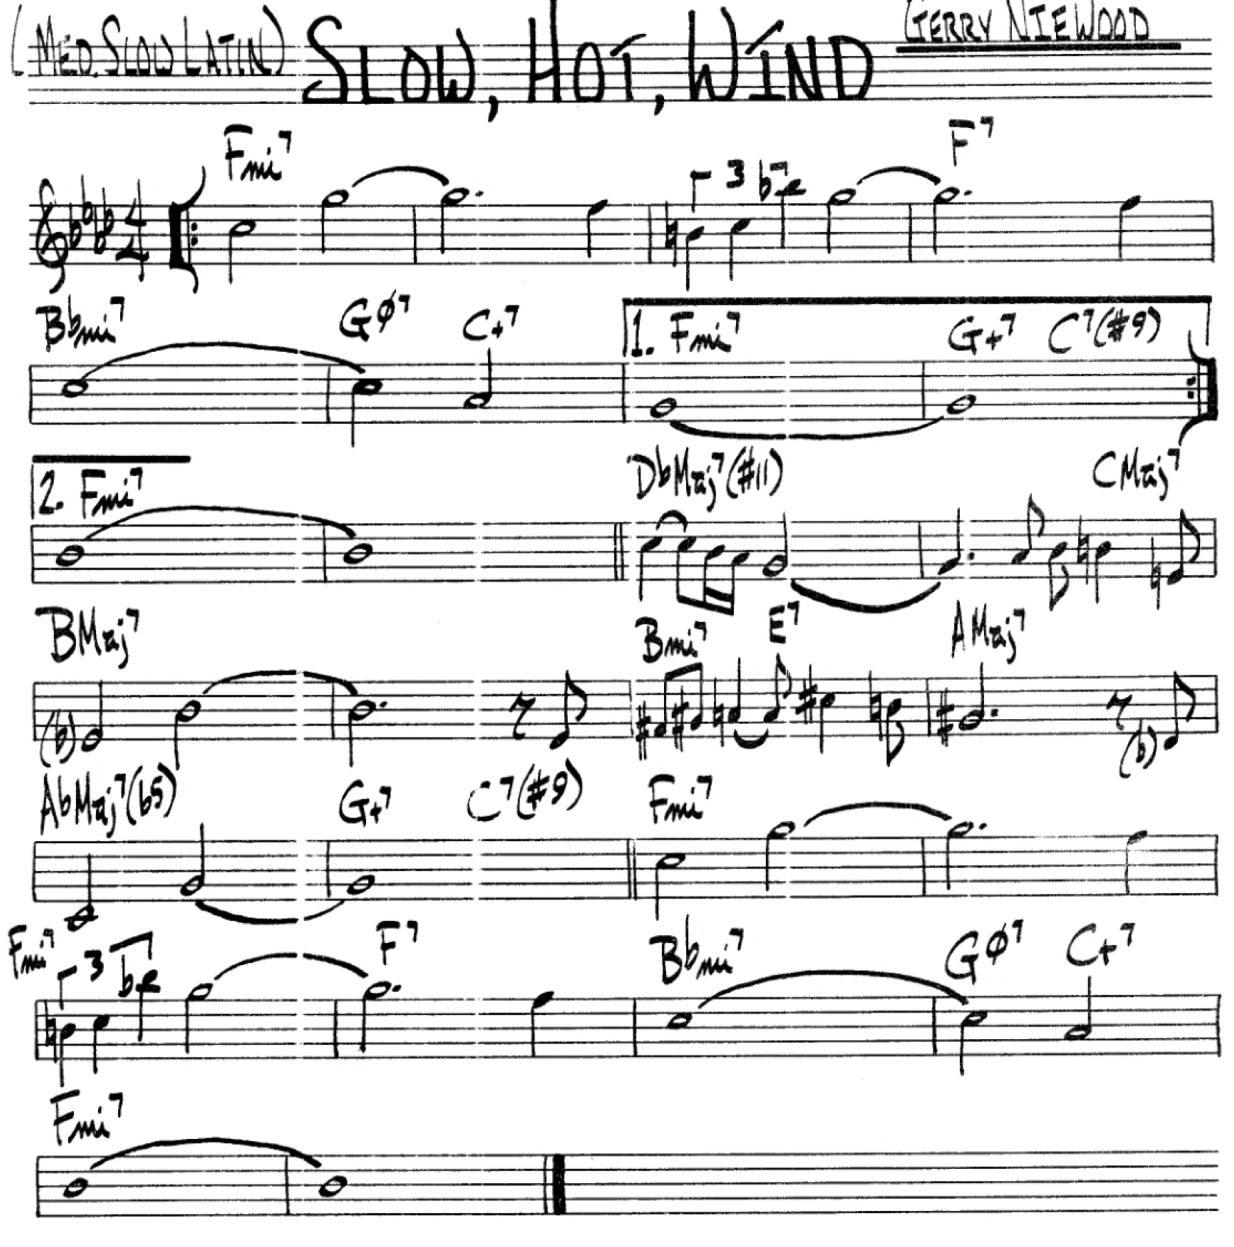 (MED. SLOW LATIN) SLOW, HOT, WIND GERRY NIEWOOD
Fmi7 F7
3
4 4
Bbmi7 GØ7 C+7 1. Fmi7 G+7 C7(#9)
2. Fmi7 DbMaj7(#11) CMaj7
BMaj7 Bmi7 E7 AMaj7
(b) (b)
AbMaj7(b5) G+7 C7(#9) Fmi7
Fmi7 3 F7 Bbmi7 GØ7 C+7
Fmi7